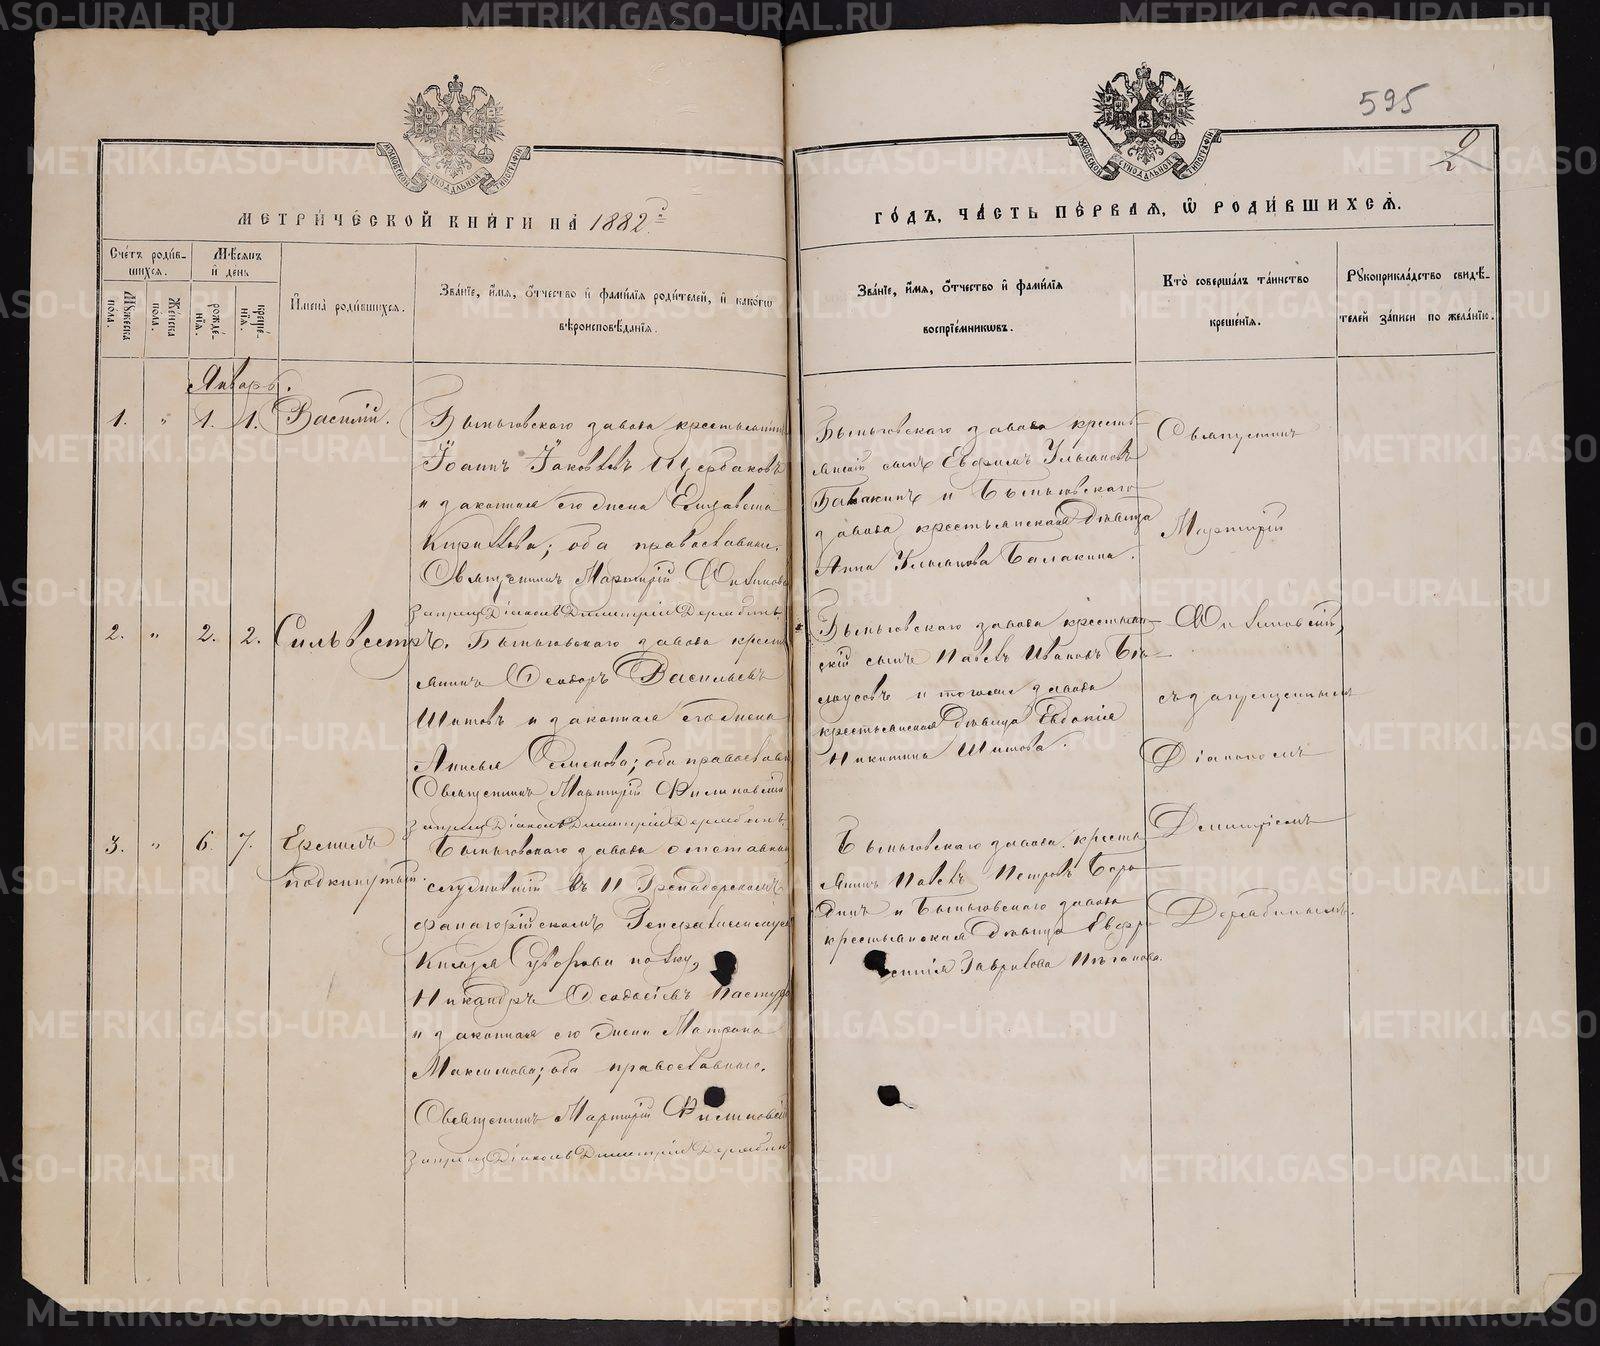 METRIKI.GASO-URAL.RU
595
2
МОСКОВСКОЙ СѴНОДАЛЬНОЙ ТИПОГРАФІИ
МОСКОВСКОЙ СѴНОДАЛЬНОЙ ТИПОГРАФІИ
МЕТРИЧЕСКОЙ КНИГИ НА 1882й
ГОДЪ, ЧАСТЬ ПЕРВАЯ, Ѡ РОДИВШИХСЯ.
Счетъ родив-
шихся.
Мѣсяцъ
и день
Мужеска пола.
Женска пола.
рожде-
нія.
креще-
нія.
Имена родившихся.
Званіе, имя, отчество и фамилія родителей, и какогѡ
вѣроисповѣданія.
Званіе, имя, отчество и фамилія
воспріемникѡвъ.
Кто совершалъ таинство
крещенія.
Рукоприкладство свидѣ-
телей записи по желанію.
Январь.
1. " 1. 1. Василій.
Быньговскаго завода крестьянинъ
Іоаннъ Іаковлевъ Щербаковъ
и законная его жена Елизавета
Кирилова; оба православные.
Священникъ Мартирій Филиповскій
Запрещ. Діаконъ Димитрій Дерябинъ
Быньговскаго завода кресть-
янскій сынъ Евфимъ Ульяновъ
Балакинъ и Быньговскаго
завода крестьянская дѣвица
Анна Ульянова Балакина.
Священникъ
Мартирій
2. " 2. 2. Сильвестръ.
Быньговскаго завода кресть-
янинъ Ѳеодоръ Васильевъ
Шитовъ и законная его жена
Анисья Семенова; оба православн
Священникъ Мартирій Филиповскій
Запрещ. Діаконъ Димитрій Дерябинъ
Быньговскаго завода крестьян-
скій сынъ Павелъ Ивановъ Бѣ-
лоусовъ и тогоже завода
крестьянская дѣвица Евдокія
Никитина Шитова.
Филиповскій,
съ запрещеннымъ
Діакономъ
3. " 6. 7. Еремилъ
подкинутый.
Быньговскаго завода отставный
служившій въ Гренадерскомъ
фанагорійскомъ Генералиссимуса
Князя Суворова полку,
Никандръ Ѳеодосіевъ
и законная его жена Матрона
Максимова; оба православнаго.
Священникъ Мартирій Филиповскій
Запрещ. Діаконъ Димитрій Дерябинъ
Быньговскаго завода кресть-
янинъ Павелъ Петровъ Боро-
динъ и Быньговскаго завода
крестьянская дѣвица Евфро-
Гаврилова
Димитріемъ
Дерябинымъ.